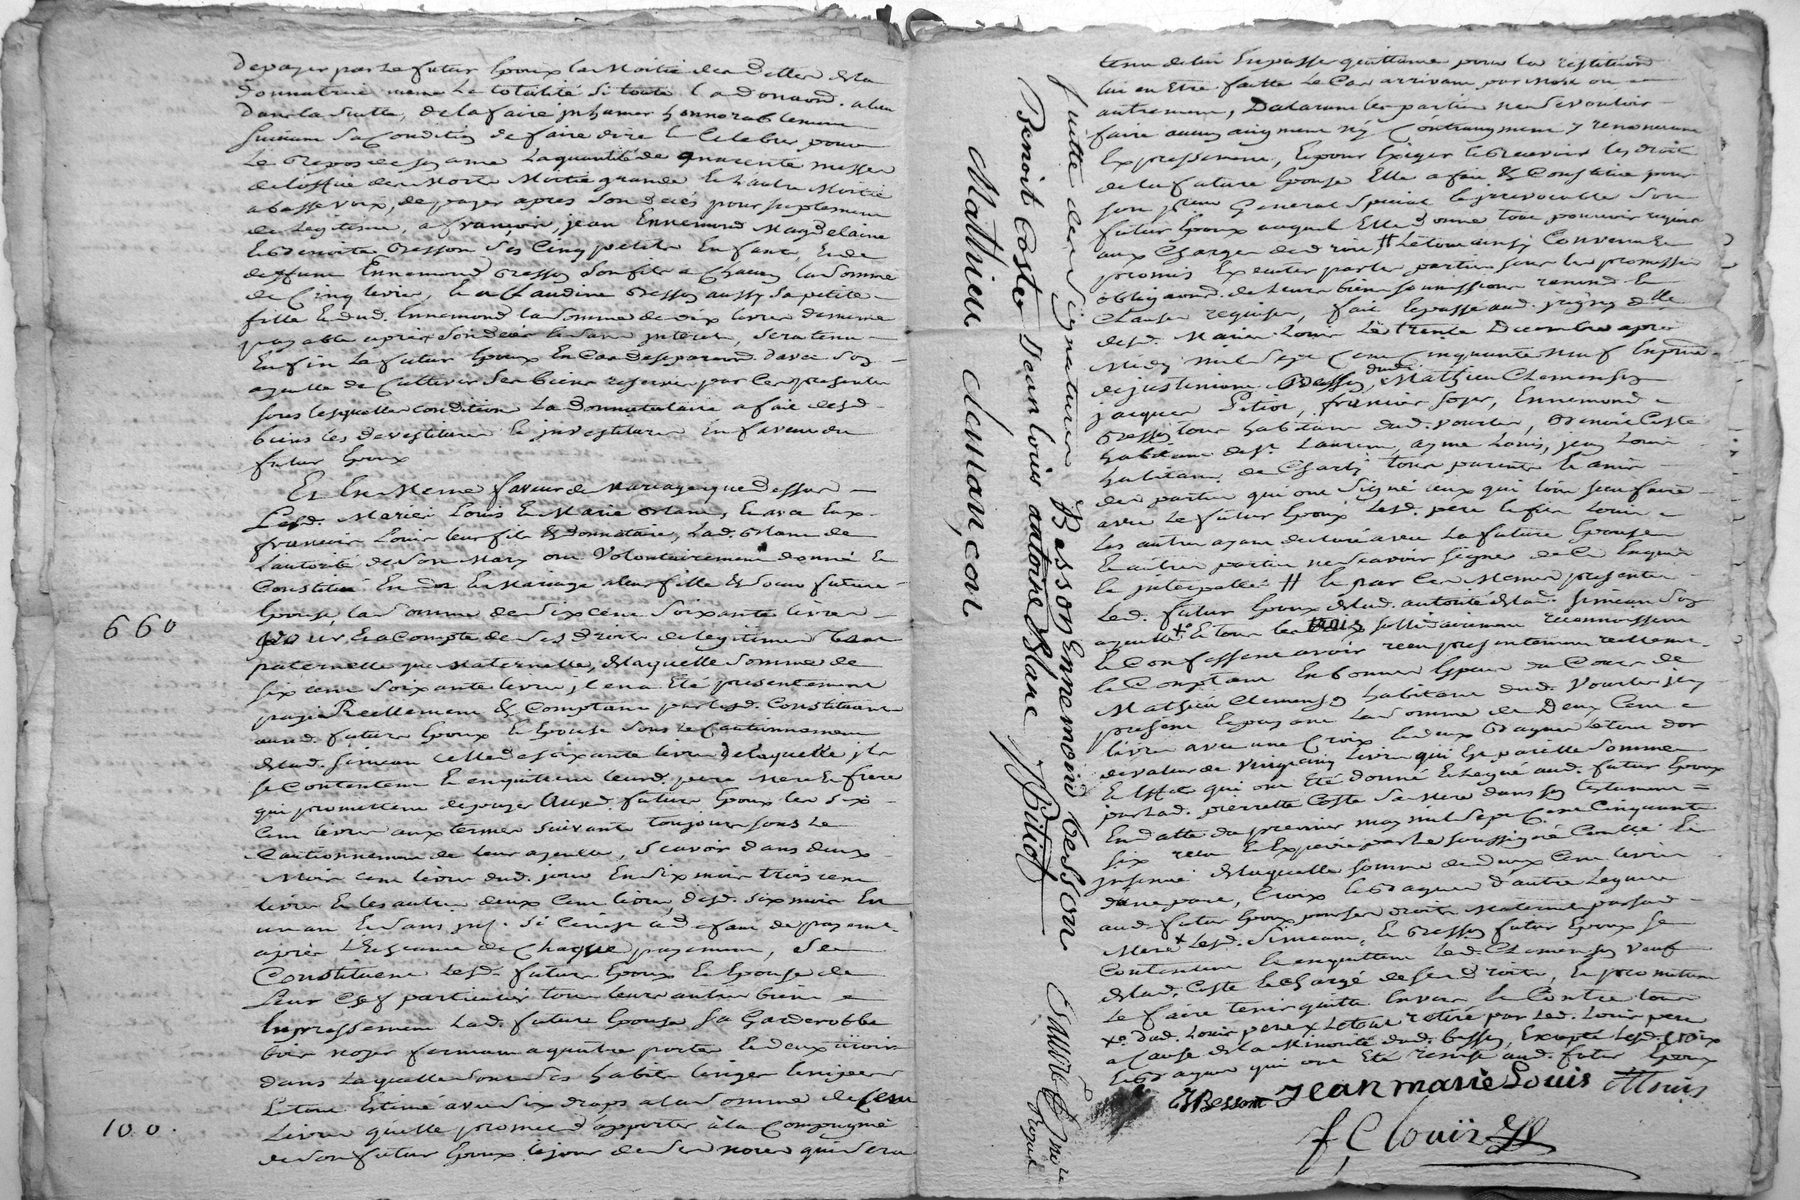 De payer par Le futur Epoux la Moitié des Dettes de la
Donnatrice meme La totalité si toute la Donnaon. a lieu
Dans la suitte, de la faire inhumer honnorablement
suivant sa Condition de faire dire & Celebrer pour
Le Repos de son ame La quantité de quarente messes
de l'office des Morts Moitié grande & l'autre Moitié
a basse voix, de payer apres son décés pour suplement
de Légitime, a françois, jean Ennemond Magdelaine
& benoite Besson ses Cinq petits Enfants, & de
deffunt Ennemond Besson son fils a Chacun la somme
de Cinq livres, & a Claudine Besson aussy sa petite
fille & dud. Ennemond la somme de dix livres
payable apres son décés & sans interet, sera tenu
Enfin le futur Epoux En Cas de separaon. d'avec son
ayeulle de Cultiver les biens reservés par Ces presentes
sous lesquelles condition La Donnataire a fait desd.
biens les devestiture & investiture En faveur du
futur Epoux
Et En Meme faveur de Mariage que Dessus
Lesd. Marie Louis & Marie Orlane, & avec Eux
françois Louis leur fils & donnataire, Lad. Orlane de
l'autorité de son Mary ont Volontairement donné &
Constitué En dot En Mariage a leur fille & soeur future
Epouse, la somme de six cent soixante livres
660
pour & a Compte de ses Droits de legitime tant
paternelle que Maternelle, de laquelle somme de
six cent soixante livres, il en a Eté presentement
payé Reellement & Comptant par lesd. Constituants
aud. futurs Epoux & Epouse sous le Cautionnement
de lad. simean celle de soixante livres de laquelle ils
se Contentent & en quittent leursd. pere Mere & frere
qui promettent de payer Auxd. futurs Epoux les six
Cent livres aux termes suivants toujours sous Le
Cautionnement de leur ayeulle, Scavoir dans deux
Mois cent livres dud. jour En six mois trois cent
livres & les autres deux Cent livres, desd. six mois En
un an & sans int. si ce n'est a déffaut de payement
apres L'Echeance de Chaque payement, se
Constituent Lesd. futurs Epoux & Epouse de
Leur Chef particulier tous leurs autres biens
Expressement Lad. future Epouse sa Garderobbe
bois noyer fermant a quatre portes & deux tiroirs
dans laquelle sont ses habits linges
Le tout Estimé avec six draps a la somme de Cent
100.
Livres qu'elle promet d'apporter à la Compagnie
de son futur Epoux le jour de ses noces qui sera
tenu de lui En passer quittance pour la restitution
lui en Etre faitte Le Cas arrivant par Mort ou
autrement, Declarant les parties ne se vouloir
faire aucun augment ny Contraugment y renoncant
Expressement, & pour Exiger & Recevoir les droits
de la future Epouse Elle a fait & Constitué pour
son preur General special & irrevocable son
futur Epoux auquel Elle donne tout pouvoir requis
aux Charges de droit // Le tout ainsy Convenu &
promis Executer par les parties sous les promesses
obligaons. de leurs biens soumissions renonds. &
Clauses requises, fait & passé aud.
desd. Mariés Louis Le trente Decembre apres
Midy mil sept cent cinquante neuf En pnce.
de justinien Besson, dud. Mathieu Clemenson
jacques Pitiot, francois soyer, Ennemond
Besson tous habitants dud. vourles, Benoit Coste
habitant de st. Laurent, ayme Louis, jean Louis
habitants de Charly tous parents & amis
des parties qui ont signé ceux qui l'ont sceu faire
avec Le futur Epoux Lesd. pere & fils Louis
Les autres ayant declaré avec La future Epouse
& autres parties ne scavoir signer de Ce Enquis
& interpellés // & par Ces Memes presentes
Led. futur Epoux de lad. autorité de lad. simean son
ayeulle & tous les trois sollidairement reconnoissent
& Confessent avoir receu presentement reellement
& Comptant En bonnes Especes du Cours de
Mathieu Clemenson habitant dud. Vourles icy
present & payant La somme de Deux Cent
livres avec une Croix & deux Bagues Le tout d'or
de valeur de Vingt cinq livres qui Est pareille somme
& Effets qui ont Eté donné & Legué aud. futur Epoux
par lad. pierrette Coste sa Mere dans son testament
En datte du premier may mil sept Cent Cinquante
six receu & Expedié par le soussigné Controllé &
insinué de laquelle somme de deux Cent livres
d'une part, Croix & Bagues d'autre Leguées
aud. futur Epoux pour ses droits Maternels par sad.
Mere + Lesd. Simean & Besson futur Epoux se
Contentent & en quittent Led. Clemenson Veuf
de lad. Coste & chargé de ses droits, & promettent
Le faire tenir quitte Envers & Contre tous
x Dud. Louis pere x Le tout retiré par led. Louis pere
a Cause de la Minorité dud. besson, Excepté Lesd. Croix
& Bagues qui ont Eté remise aud. futur Epoux
JBesson Jean marie Louis ALouis
f C louis
Suitte des Signatures Besson Ennemoind besson
Benoit Coster Jean louis antoine Blanc JPitiot
Mathieu clemançon